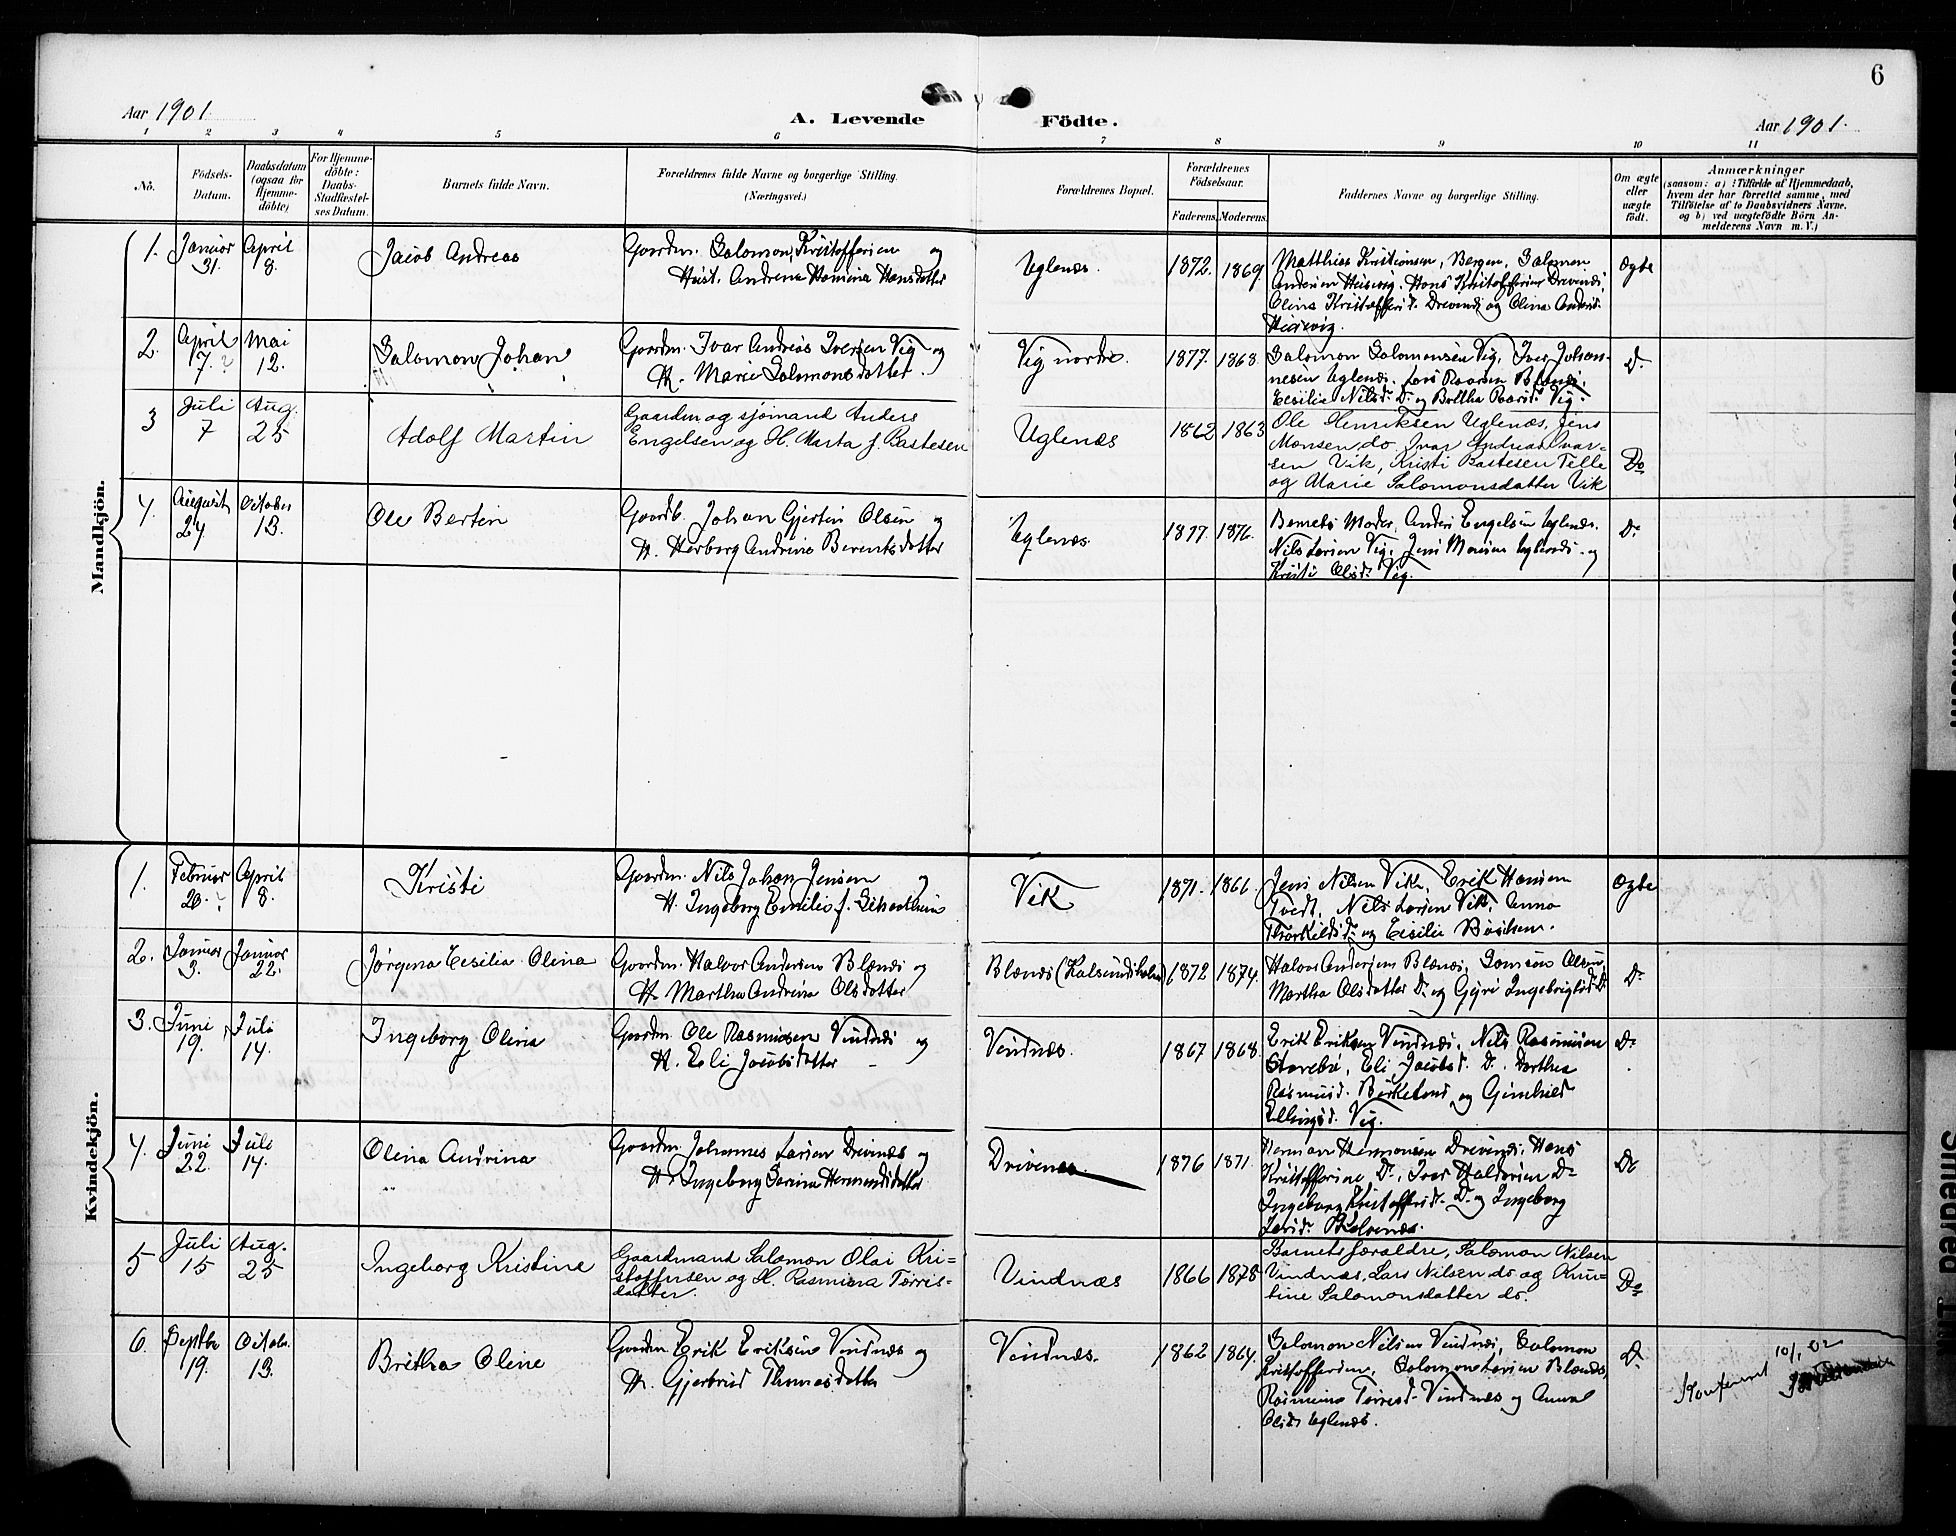 6
Aar 1901.
A. Levende Födte.
Aar 1901.
1 2 3 4 5 6 7 8 9 10 11
No.
Födsels-Datum.
Daabsdatum (ogsaa for Hjemme-döbte)
For Hjemme-döbte: Daabs-Stadfæstel-ses Datum.
Barnets fulde Navn.
Forældrenes fulde Navne og borgerlige Stilling.
(Næringsvei.)
Forældrenes Bopæl.
Forældrenes Födselsaar.
Faderens. Moderens.
Faddernes Navne og borgerlige Stilling.
Om ægte eller uægte födt.
Anmærkninger
(saasom: a) i Tilfælde af Hjemmedaab,
hvem der har forrettet samme, med
Tilföielse af to Daabsvidners Navne,
og b) ved uægtefödte Börn An-
melderens Navn m. V.)
Mandkjön.
1. Januar 31. April 8. Jacob Andreas
Gaardm. Salomon Kristoffersen og
Hust. Andrena Hansdatter
Uglenæs. 1872. 1869
Matthias Kristiansen, Bergen, Salomon
Ægte
2. April 7. Mai 12. Salomon Johan
Gaardm. Ivar Andreas Iversen Vig og
H. Marie Salomonsdatter.
Vig nordre. 1877. 1868.
Salomon Salomonsen Vig, Iver Johan-
nesen Uglenæs.
Cesilia Nilsd. Do og Vig.
Do
3 Juli 7 Aug. 25 Adolf Martin
Gaardm. og sjömand Anders
Engelsen og H. Marta f. Bastesen
Uglenæs 1862 1863
Ole Henriksen Uglenæs, Jens
Monsen do. Ivar Andreas Ivar-
sen Vik, Kristi Bastesen Telle
og Marie Salomonsdatter Vik
Do
4. August 27. October 13. Ole Bertin
Gaardb. Johan Gjertin Olsen og
H. Herborg Andrine Berentsdatter
Uglenæs. 1877. 1876.
Barnets Moder, Anders Engelsen Uglenæs.
Nils Larsen Vig, Jens Monsen Uglenæs. og
Kristi Olsd. Vig.
Do
Kvindekjön.
1. Februar 20. April 8. Kristi
Gaardm. Nils Johan Jensen og
H. Ingeborg Emilie f.
Vik 1871. 1866.
Jens Nilsen Vik, Erik Hansen
Tvedt, Nils Larsen Vik, Anna
Thorkildsd. og Cesilie
Ægte
2. Januar 3. Januar 22. Jørgena Cesilia Olina
Gaardm. Halvor Andersen Blænæs og
H. Martha Andrina Olsdatter
Blænæs 1872 1874.
Halvor Andersen Blænæs, Samson Olsen
Martha Olsdatter Do og Gyri
Do
3. Juni 19. Juli 14. Ingeborg Olina
Gaardm. Ole Rasmussen Vindnæs og
H. Eli Jacobsdatter
Vindnæs. 1867 1868.
Erik Eriksen Vindnæs, Nils Rasmussen
Storebø, Eli Jacobsd. Do. Dorthea
Rasmusd. Birkeland og Gunhild
Ellingsd. Vig.
Do
4. Juni 22. Juli 14. Olina Andrina
Gaardm. Johannes Larsen Drivenæs og
H. Ingeborg Serina Hermansdatter
Drivenæs. 1876 1871.
Herman Hermansen Drivenæs, Hans
Kristoffersen Do, Iver Haldorsen Do
Ingeborg Kristoffersd. Do og Ingeborg
Larsd.
Do
5 Juli 15 Aug. 25 Ingeborg Kristine
Gaardmand Salomon Olai Kri-
stoffersen og H. Rasmina Tørris-
datter.
Vindnæs 1866 1878
Barnets forældre, Salomon Nilsen
Vindnæs, Lars Nilsen do og Knu-
tine Salomonsdatter do.
Do
6. Septbr 19. Octob. 13. Britha Oline
Gaardm. Erik Eriksen Vindnæs og
H. Gjertrud Thomasdatter
Vindnæs. 1862 1864.
Salomon Nilsen Vindnæs, Salomon
Kristoffersen, Salomon Larsen Blænæs,
Rasmine Tørrisd. Vindnæs og Anna
Olsd. Uglenæs.
Do
Konfereret 10/1 02